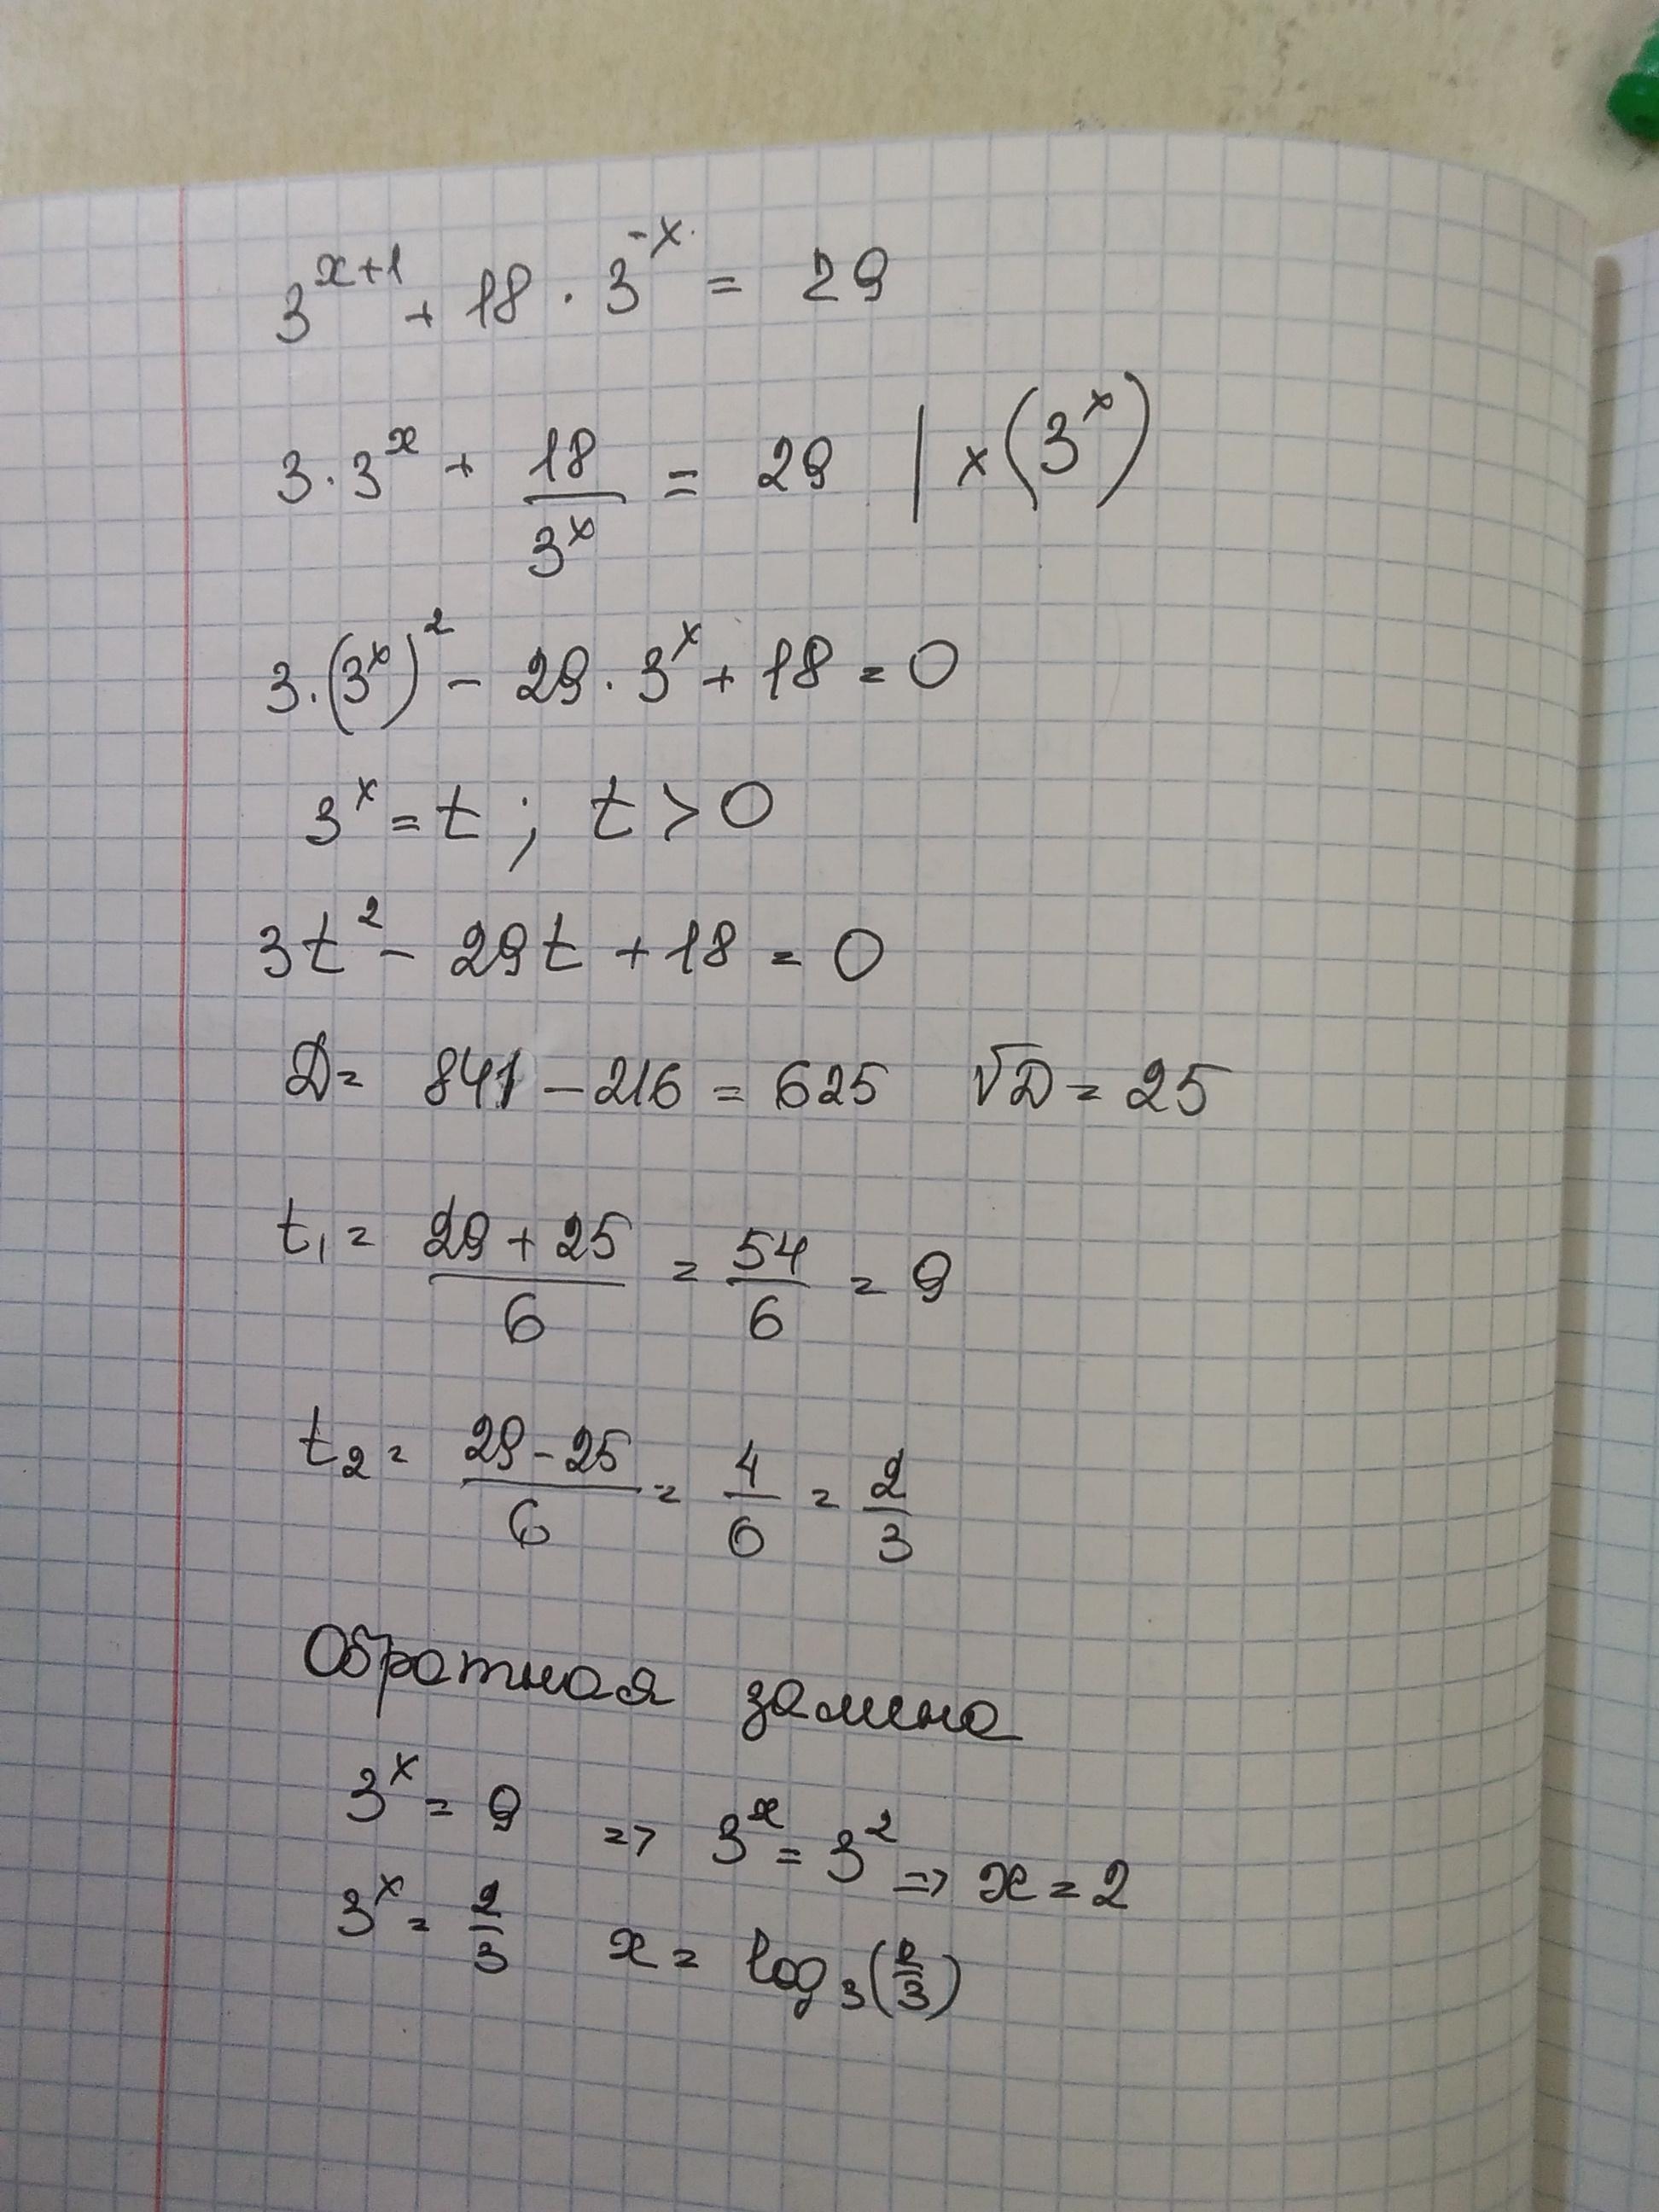 3^{x+1} + 18 · 3^{-x} = 29
3 · 3^x + 18/3^x = 29 | × (3^x)
3 · (3^x)^2 - 29 · 3^x + 18 = 0
3^x = t ; t > 0
3t^2 - 29t + 18 = 0
D = 841 - 216 = 625 √D = 25
t_1 = (29 + 25)/6 = 54/6 = 9
t_2 = (29 - 25)/6 = 4/6 = 2/3
Обратная замена
3^x = 9 => 3^x = 3^2 => x = 2
3^x = 2/3 x = log_3(2/3)